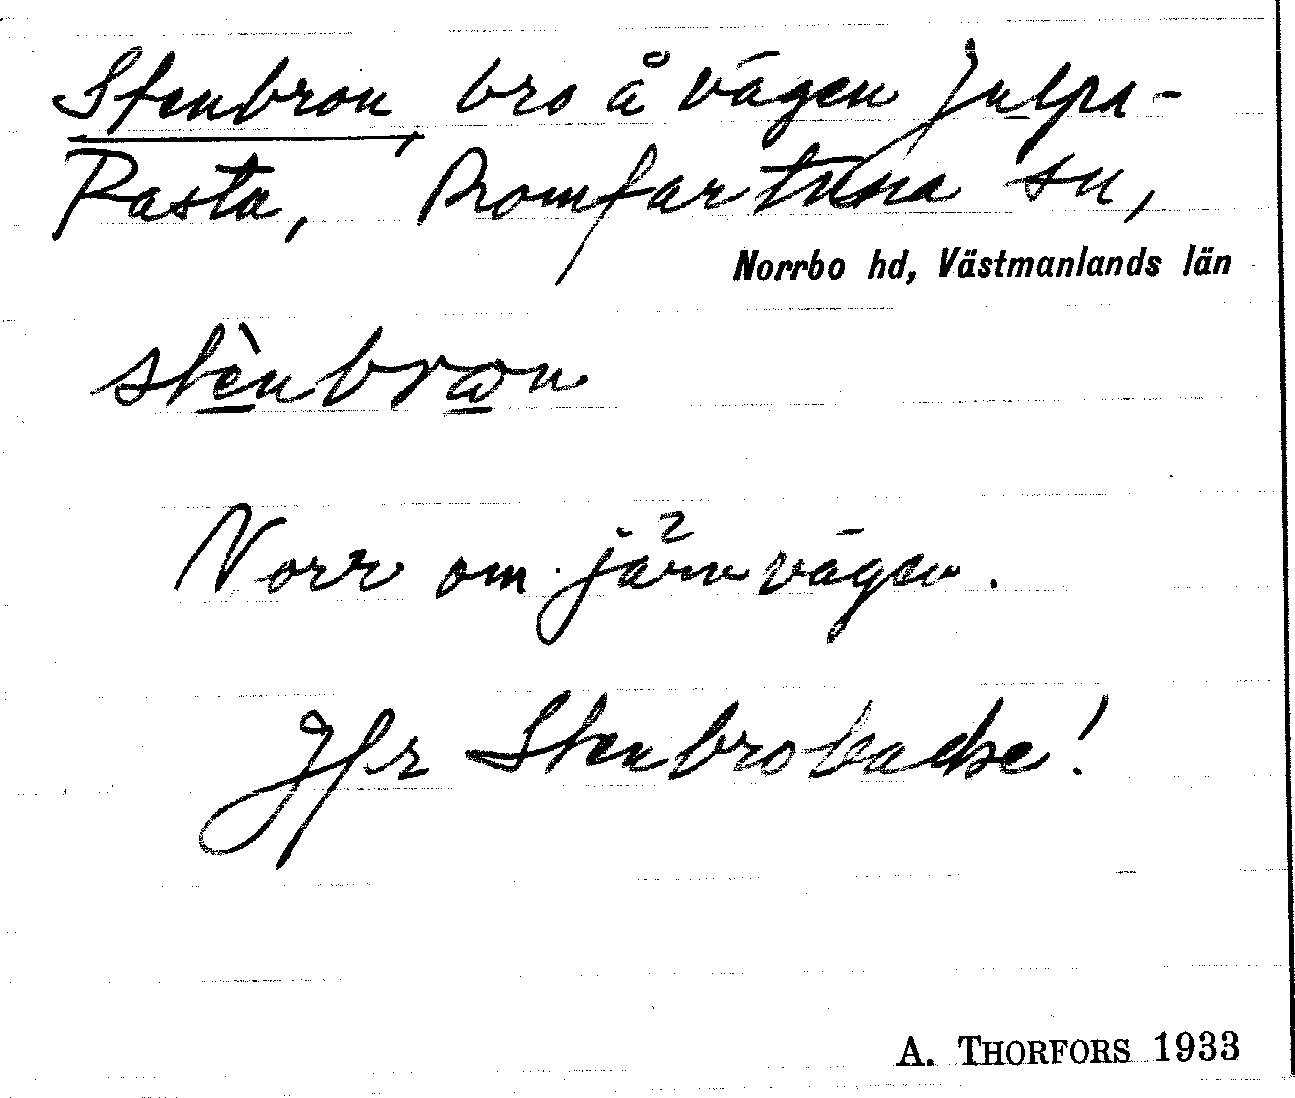 Stenbron, bro å vägen Julpa-
Rasta, Romfartuna sn,
Norrbo hd, Västmanlands län
stènbrωn
Norr om järnvägen.
Jfr Stenbrobacke!
A. THORFORS 1933